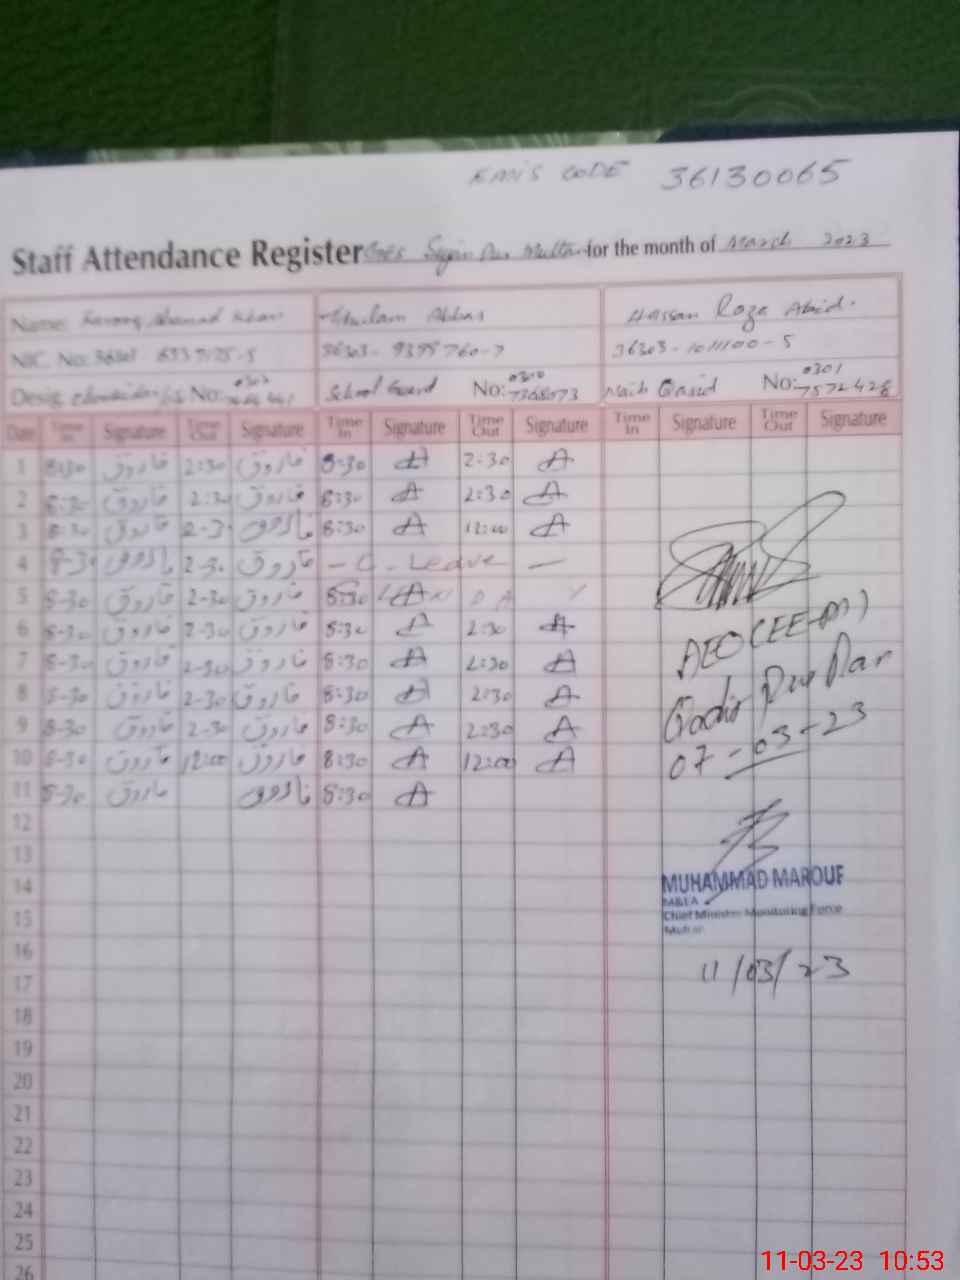 EMIS CODE 36130065
Staff Attendance Register for the month of March 2023
Name: Ahmad Khan Ghulam Abbas Hassan Roza Abid.
NIC. No: 36303-9395760-7 36303-1011100-5
Desig: No: 0302 School Guard No: 0310 7368073 Naib Qasid No: 0301 7572428
Date Time In Signature Time Out Signature Time In Signature Time Out Signature Time In Signature Time Out Signature
1 8:30 فاروق 2:30 فاروق 8:30 A 2:30 A
2 8:30 فاروق 2:30 فاروق 8:30 A 2:30 A
3 8:30 فاروق 2-3 فاروق 8:30 A 12:00 A
4 8-30 فاروق 2-30 فاروق - C. Leave -
5 8-30 فاروق 2-30 فاروق 8:30
6 8-30 فاروق 2-30 فاروق 8:30 A 2:30 A
7 8-30 فاروق 2-30 فاروق 8:30 A 2:30 A
8 8-30 فاروق 2-30 فاروق 8:30 A 2:30 A
9 8-30 فاروق 2-30 فاروق 8:30 A 2:30 A
10 8-30 فاروق 12:00 فاروق 8:30 A 12:00 A
11 8-30 فاروق فاروق 8:30 A
AEO (EE-M)
Qadir Pur Ran
07-03-23
12
13
14
MUHAMMAD MAROUF
M&EA
15
Chief Minister Monitoring Force
Multan
16
17
11/03/23
18
19
20
21
22
23
24
25
26
11-03-23 10:53